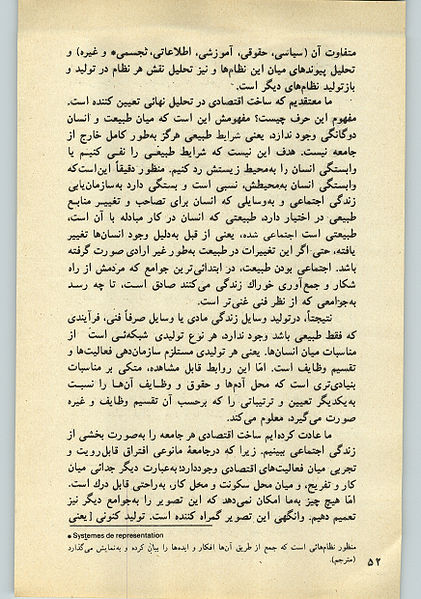 متفاوت آن (سیاسی، حقوقی، آموزشی، اطلاعاتی، تجسمی* و غیره) و
تحلیل پیوندهای میان این نظام‌ها و نیز تحلیل نقش هر نظام در تولید و
بازتولید نظام‌های دیگر است.
ما معتقدیم که ساخت اقتصادی در تحلیل نهائی تعیین کننده است.
مفهوم این حرف چیست؟ مفهومش این است که میان طبیعت و انسان
دوگانگی وجود ندارد، یعنی شرایط طبیعی هرگز به‌طور کامل خارج از
جامعه نیست. هدف این نیست که شرایط طبیعی را نفی کنیم یا
وابستگی انسان را به‌محیط زیستش رد کنیم. منظور دقیقاً این‌است‌که
وابستگی انسان به‌محیطش، نسبی است و بستگی دارد به‌سازمان‌یابی
زندگی اجتماعی و به‌وسایلی که انسان برای تصاحب و تغییر منابع
طبیعی در اختیار دارد، طبیعتی که انسان در کار مبادله با آن است،
طبیعتی است اجتماعی شده، یعنی از قبل به‌دلیل وجود انسان‌ها تغییر
یافته، حتی اگر این تغییرات در طبیعت به‌طور غیر ارادی صورت گرفته
باشد. اجتماعی بودن طبیعت، در ابتدائی‌ترین جوامع که مردمش از راه
شکار و جمع‌آوری خوراك زندگی می‌کنند صادق است، تا چه رسد
به‌جوامعی که از نظر فنی غنی‌تر است.
نتیجتاً، درتولید وسایل زندگی مادی یا وسایل صرفاً فنی، فرآیندی
که فقط طبیعی باشد وجود ندارد، هر نوع تولیدی شبکه‌ئی است از
مناسبات میان انسان‌ها. یعنی هر تولیدی مستلزم سازمان‌دهی فعالیت‌ها و
تقسیم وظایف است. امّا این روابط قابل مشاهده، متکی بر مناسبات
بنیادی‌تری است که محل آدم‌ها و حقوق و وظایف آن‌ها را نسبت
به‌یکدیگر تعیین و ترتیباتی را که برحسب آن تقسیم وظایف و غیره
صورت می‌گیرد، معلوم می‌کند.
ما عادت کرده‌ایم ساخت اقتصادی هر جامعه را به‌صورت بخشی از
زندگی اجتماعی ببینیم. زیرا که درجامعهٔ مانوعی افتراق قابل‌رویت و
تجربی میان فعالیت‌های اقتصادی وجوددارد؛به‌عبارت دیگر جدائی میان
کار و تفریح، و میان محل سکونت و محل کار، به‌راحتی قابل درك است.
امّا هیچ چیز به‌ما امکان نمی‌دهد که این تصویر را به‌جوامع دیگر نیز
تعمیم دهیم. وانگهی این تصویر گمراه کننده است. تولید کنونی [یعنی
* Systemes de representation
منظور نظام‌هائی است که جمع از طریق آن‌ها افکار و ایده‌ها را بیان کرده و به‌نمایش می‌گذارد
(مترجم).
۵۲